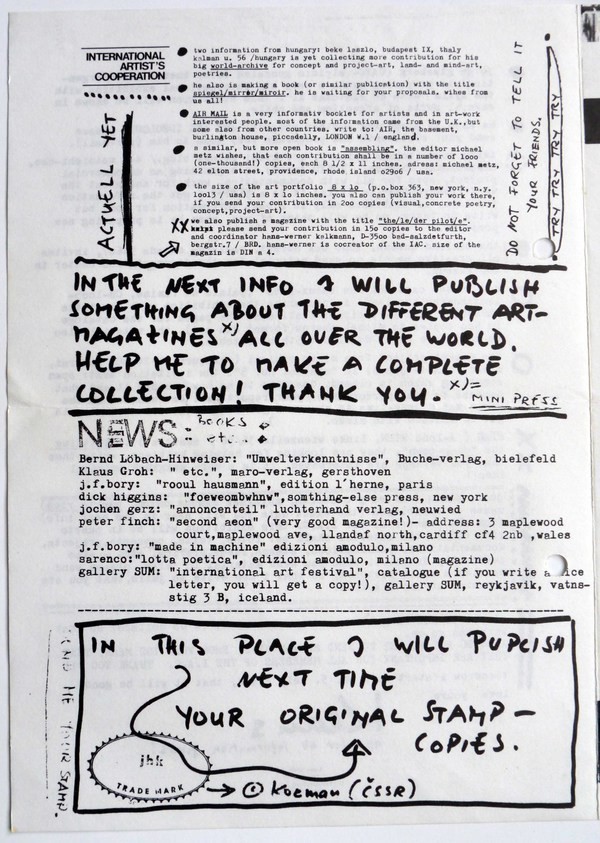 INTERNATIONAL
ARTIST'S
COOPERATION
ACTUELL YET
two information from hungary: beke laszlo, budapest IX, thaly
kalman u. 56 /hungary is yet collecting more contribution for his
big world-archive for concept and project-art, land- and mind-art,
poetries.
he also is making a book (or similar publication) with the title
spiegel/mirror/miroir. he is waiting for your proposals, wihes from
us all!
AIR MAIL is a very informativ booklet for artists and in art-work
interested people. most of the information come from the U.K.,but
some also from other countries. write to: AIR, the basement,
burlington house, piccedelly, LONDON W.1 / england.
a similar, but more open book is "assembling". the editor michael
metz wishes, that each contribution shall be in a number of 1ooo
(one-thousand!) copies, each 8 1/2 x 11 inches, adress: michael metz,
42 elton street, providence, rhode island o29o6 / usa.
the size of the art portfolio 8 x 1o (p.o.box 363, new york, n.y.
1oo13 / usa) is 8 x 1o inches, you also can publish your work there,
if you send your contribution in 2oo copies (visual,concrete poetry,
concept,project-art).
XX we also publish a magazine with the title "the/le/der pilot/e".
please send your contribution in 15o copies to the editor
and coordinator hans-werner kalkmann, D-35oo bad-salzdetfurth,
bergstr.7 / BRD. hans-werner is cocreator of the IAC. size of the
magazin is DIN a 4.
DO NOT FORGET TO TELL IT
YOUR FRIENDS.
TRY TRY TRY TRY
IN THE NEXT INFO I WILL PUBLISH
SOMETHING ABOUT THE DIFFERENT ART-
MAGAZINES x) ALL OVER THE WORLD.
HELP ME TO MAKE A COMPLETE
COLLECTION! THANK YOU. x)=
MINI PRESS
NEWS: BOOKS
etc..
Bernd Löbach-Hinweiser: "Umwelterkenntnisse", Buche-verlag, bielefeld
Klaus Groh: " etc.", maro-verlag, gersthoven
j.f.bory: "rooul hausmann", edition l´herne, paris
dick higgins: "foeweombwhnw",somthing-else press, new york
jochen gerz: "annoncenteil" luchterhand verlag, neuwied
peter finch: "second aeon" (very good magazine!)- address: 3 maplewood
court,maplewood ave, llandaf north,cardiff cf4 2nb ,wales
j.f.bory: "made in machine" edizioni amodulo,milano
sarenco:"lotta poetica", edizioni amodulo, milano (magazine)
gallery SUM: "international art festival", catalogue (if you write a nice
letter, you will get a copy!), gallery SUM, reykjavik, vatns-
stig 3 B, iceland.
IN THIS PLACE I WILL PUPLISH
NEXT TIME
YOUR ORIGINAL STAMP-
COPIES.
jhk
TRADE MARK
© Kozman (ČSSR)
SEND ME YOUR STAMP.